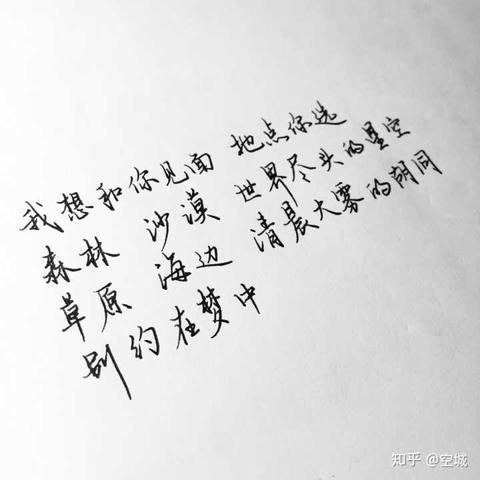 我想和你见面 地点你选
森林 沙漠 世界尽头的星空
草原 海边 清晨大雾的胡同
别约在梦中
知乎 @空城